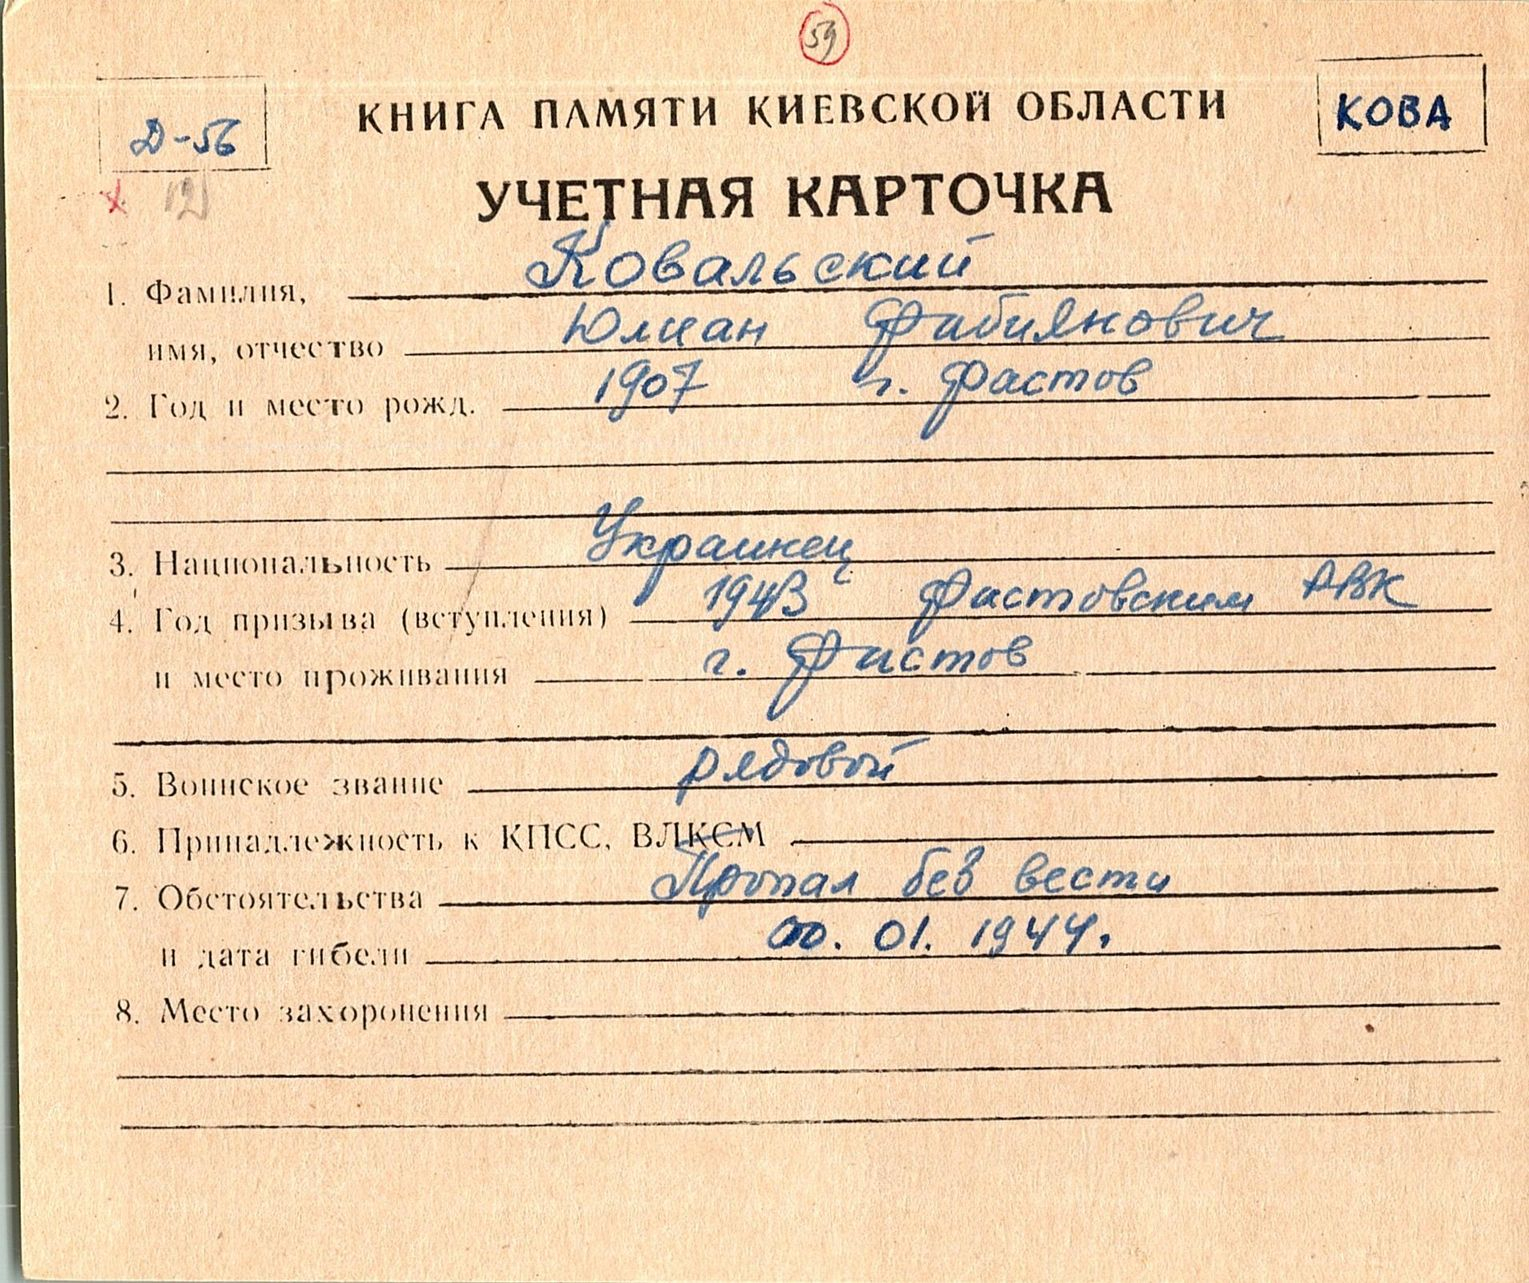 59
Д-56
КНИГА ПАМЯТИ КИЕВСКОЙ ОБЛАСТИ
КОВА
УЧЕТНАЯ КАРТОЧКА
1. Фамилия, Ковальский
имя, отчество Юлиан Фабиянович
2. Год и место рожд. 1907 г. Фастов
3. Национальность Украинец
4. Год призыва (вступления) 1943 Фастовским РВК
и место проживания г. Фастов
5. Воинское звание рядовой
6. Принадлежность к КПСС, ВЛКСМ
7. Обстоятельства Пропал без вести
и дата гибели 00. 01. 1944.
8. Место захоронения